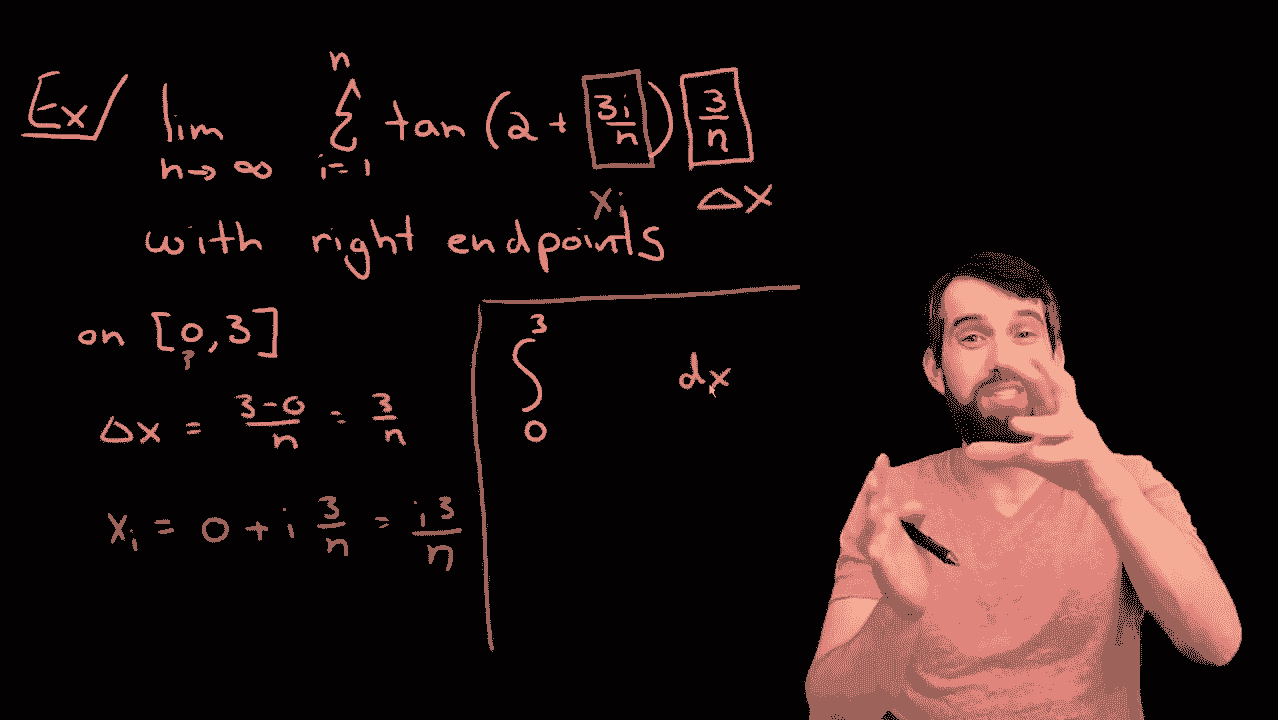 Ex/ lim n→∞ n Σ i=1 tan (2 + 3i/n) 3/n
xi Δx
with right endpoints
on [0,3]
?
Δx = 3-0/n = 3/n
xi = 0 + i 3/n = i3/n
∫ 3 0 dx